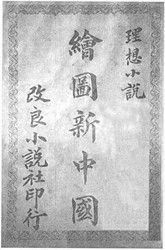 理想小説
繪圖新中國
改良小説社印行